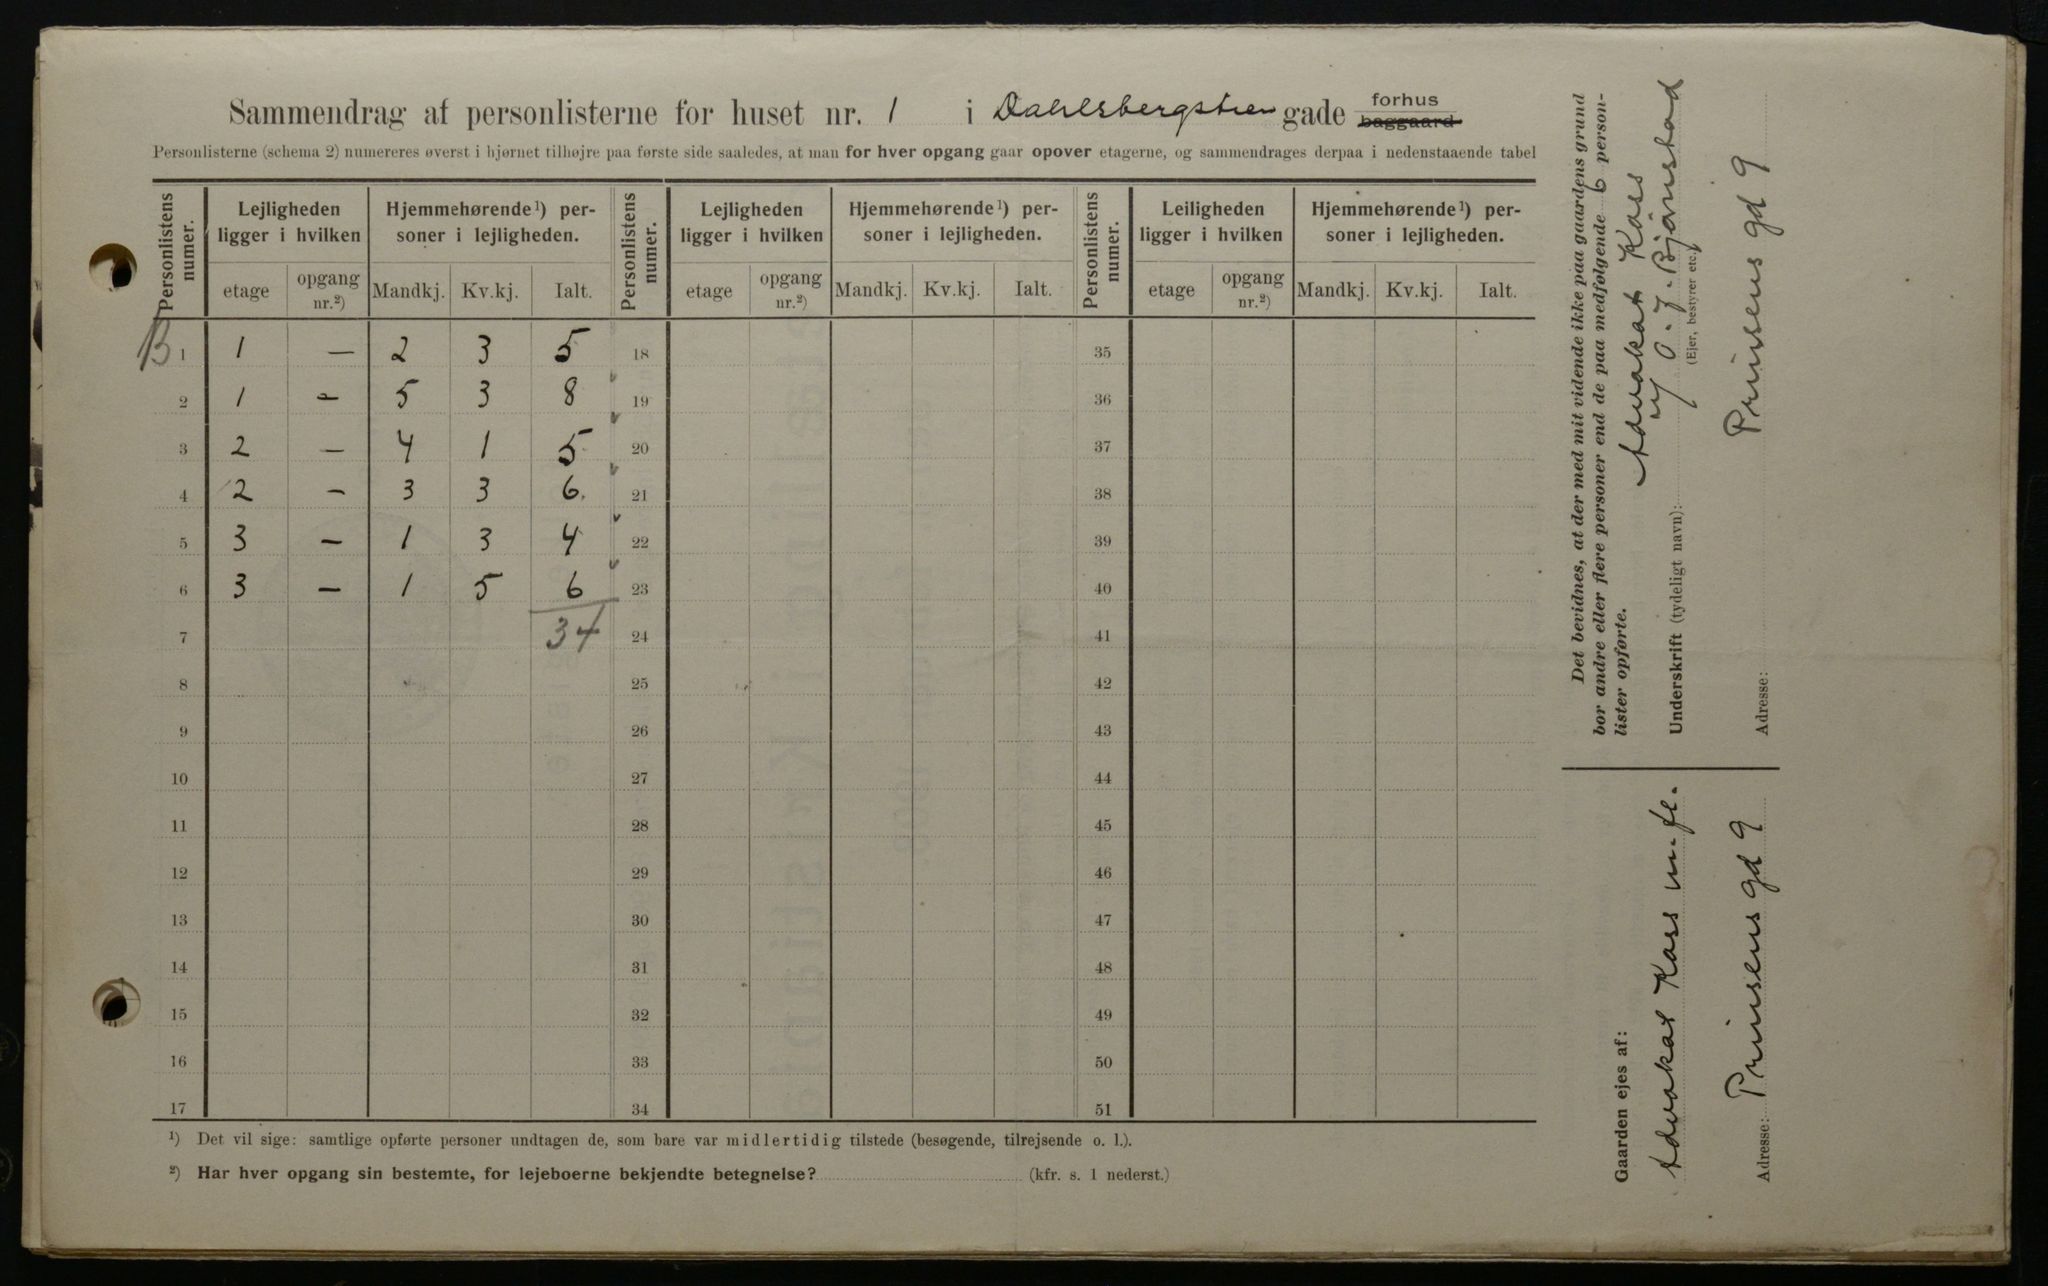 Sammendrag af personlisterne for huset nr. 1 i Dahlsbergstien gade forhus baggaard
Personlisterne (schema 2) numereres øverst i hjørnet tilhøjre paa første side saaledes, at man for hver opgang gaar opover etagerne, og sammendrages derpaa i nedenstaaende tabel
Personlistens numer. Lejligheden ligger i hvilken Hjemmehørende¹) personer i lejligheden. Personlistens numer. Lejligheden ligger i hvilken Hjemmehørende¹) personer i lejligheden. Personlistens numer. Leiligheden ligger i hvilken Hjemmehørende¹) personer i lejligheden.
etage opgang nr.²) Mandkj. Kv.kj. Ialt. etage opgang nr.²) Mandkj. Kv.kj. Ialt. etage opgang nr.²) Mandkj. Kv.kj. Ialt.
B 1 1 — 2 3 5 18 35
2 1 — 5 3 8 19 36
3 2 — 4 1 5 20 37
4 2 — 3 3 6 21 38
5 3 — 1 3 4 22 39
6 3 — 1 5 6 23 40
7 34 24 41
8 25 42
9 26 43
10 27 44
11 28 45
12 29 46
13 30 47
14 31 48
15 32 49
16 33 50
17 34 51
¹) Det vil sige: samtlige opførte personer undtagen de, som bare var midlertidig tilstede (besøgende, tilrejsende o. l.).
²) Har hver opgang sin bestemte, for lejeboerne bekjendte betegnelse? (kfr. s. 1 nederst.)
Det bevidnes, at der med mit vidende ikke paa gaardens grund
bor andre eller flere personer end de paa medfølgende 6 person-
lister opførte.
Advokat Kass
Underskrift (tydeligt navn): O. J. Bjørnstad
(Ejer, bestyrer etc.)
Adresse: Prinsens gd 9
Gaarden ejes af:
Advokat Kass m. fl.
Adresse: Prinsens gd 9